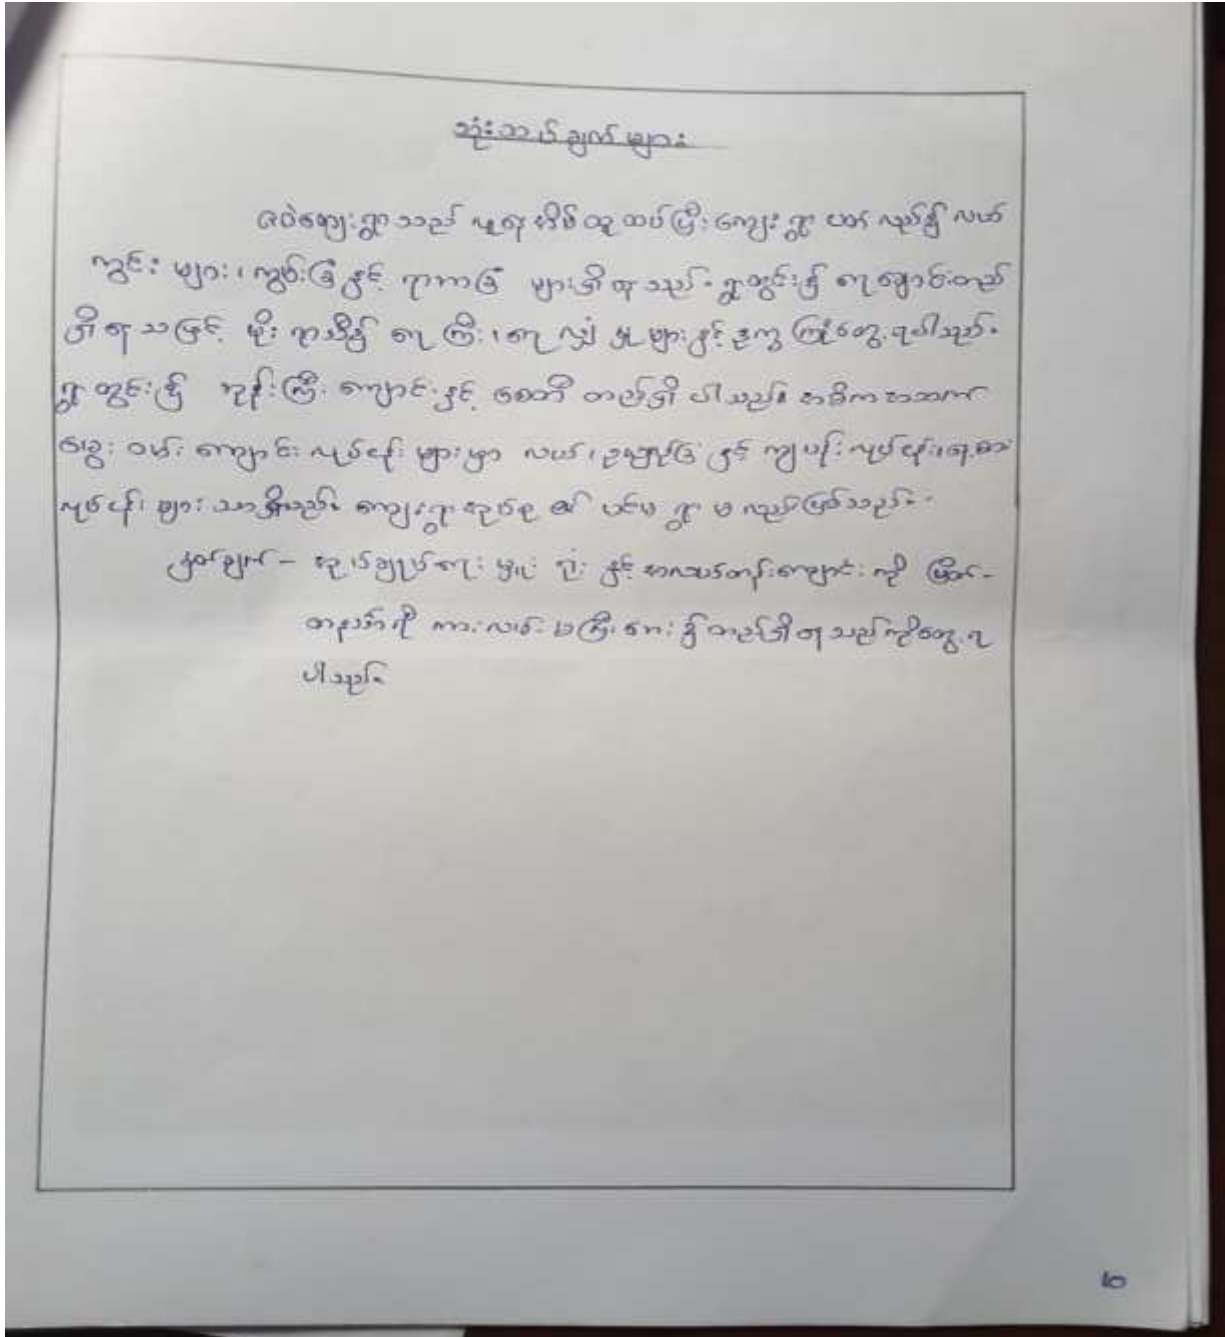 သုံးသပ်ချက်များ
ဇဝဲကျေးရွာသည် လူနေအိမ်ထူထပ်ပြီး ကျေးရွာ ပတ်လည်၌ လယ်
ကွင်းများ၊ ကွမ်းခြံနှင့် ရာဘာခြံ များရှိနေသည်။ ရွာတွင်း၌ ရေချောင်းတည်
ရှိနေသဖြင့် မိုးရာသီ၌ ရေကြီး၊ ရေလျှံမှုများနှင့် ဥက္က ကြုံတွေ့ရပါသည်။
ရွာတွင်း၌ ဘုန်းကြီးကျောင်းနှင့် စေတီ တည်ရှိပါသည်။ အဓိကအသက်
မွေးဝမ်းကျောင်းလုပ်ငန်းများမှာ လယ်၊ ဥယျာဉ်ခြံနှင့် ကျပန်းလုပ်ငန်း၊
လုပ်ငန်းများသာရှိသည်။ ကျေးရွာအုပ်စု ၏ ပင်မရွာမလည်းဖြစ်သည်။
မှတ်ချက် – အုပ်ချုပ်ရေးမှူးရုံးနှင့် အလယ်တန်းကျောင်းကို မြိတ်-
တနင်္သာရီ ကားလမ်းမကြီးဘေး၌တည်ရှိနေသည်ကိုတွေ့ရ
ပါသည်။
၉